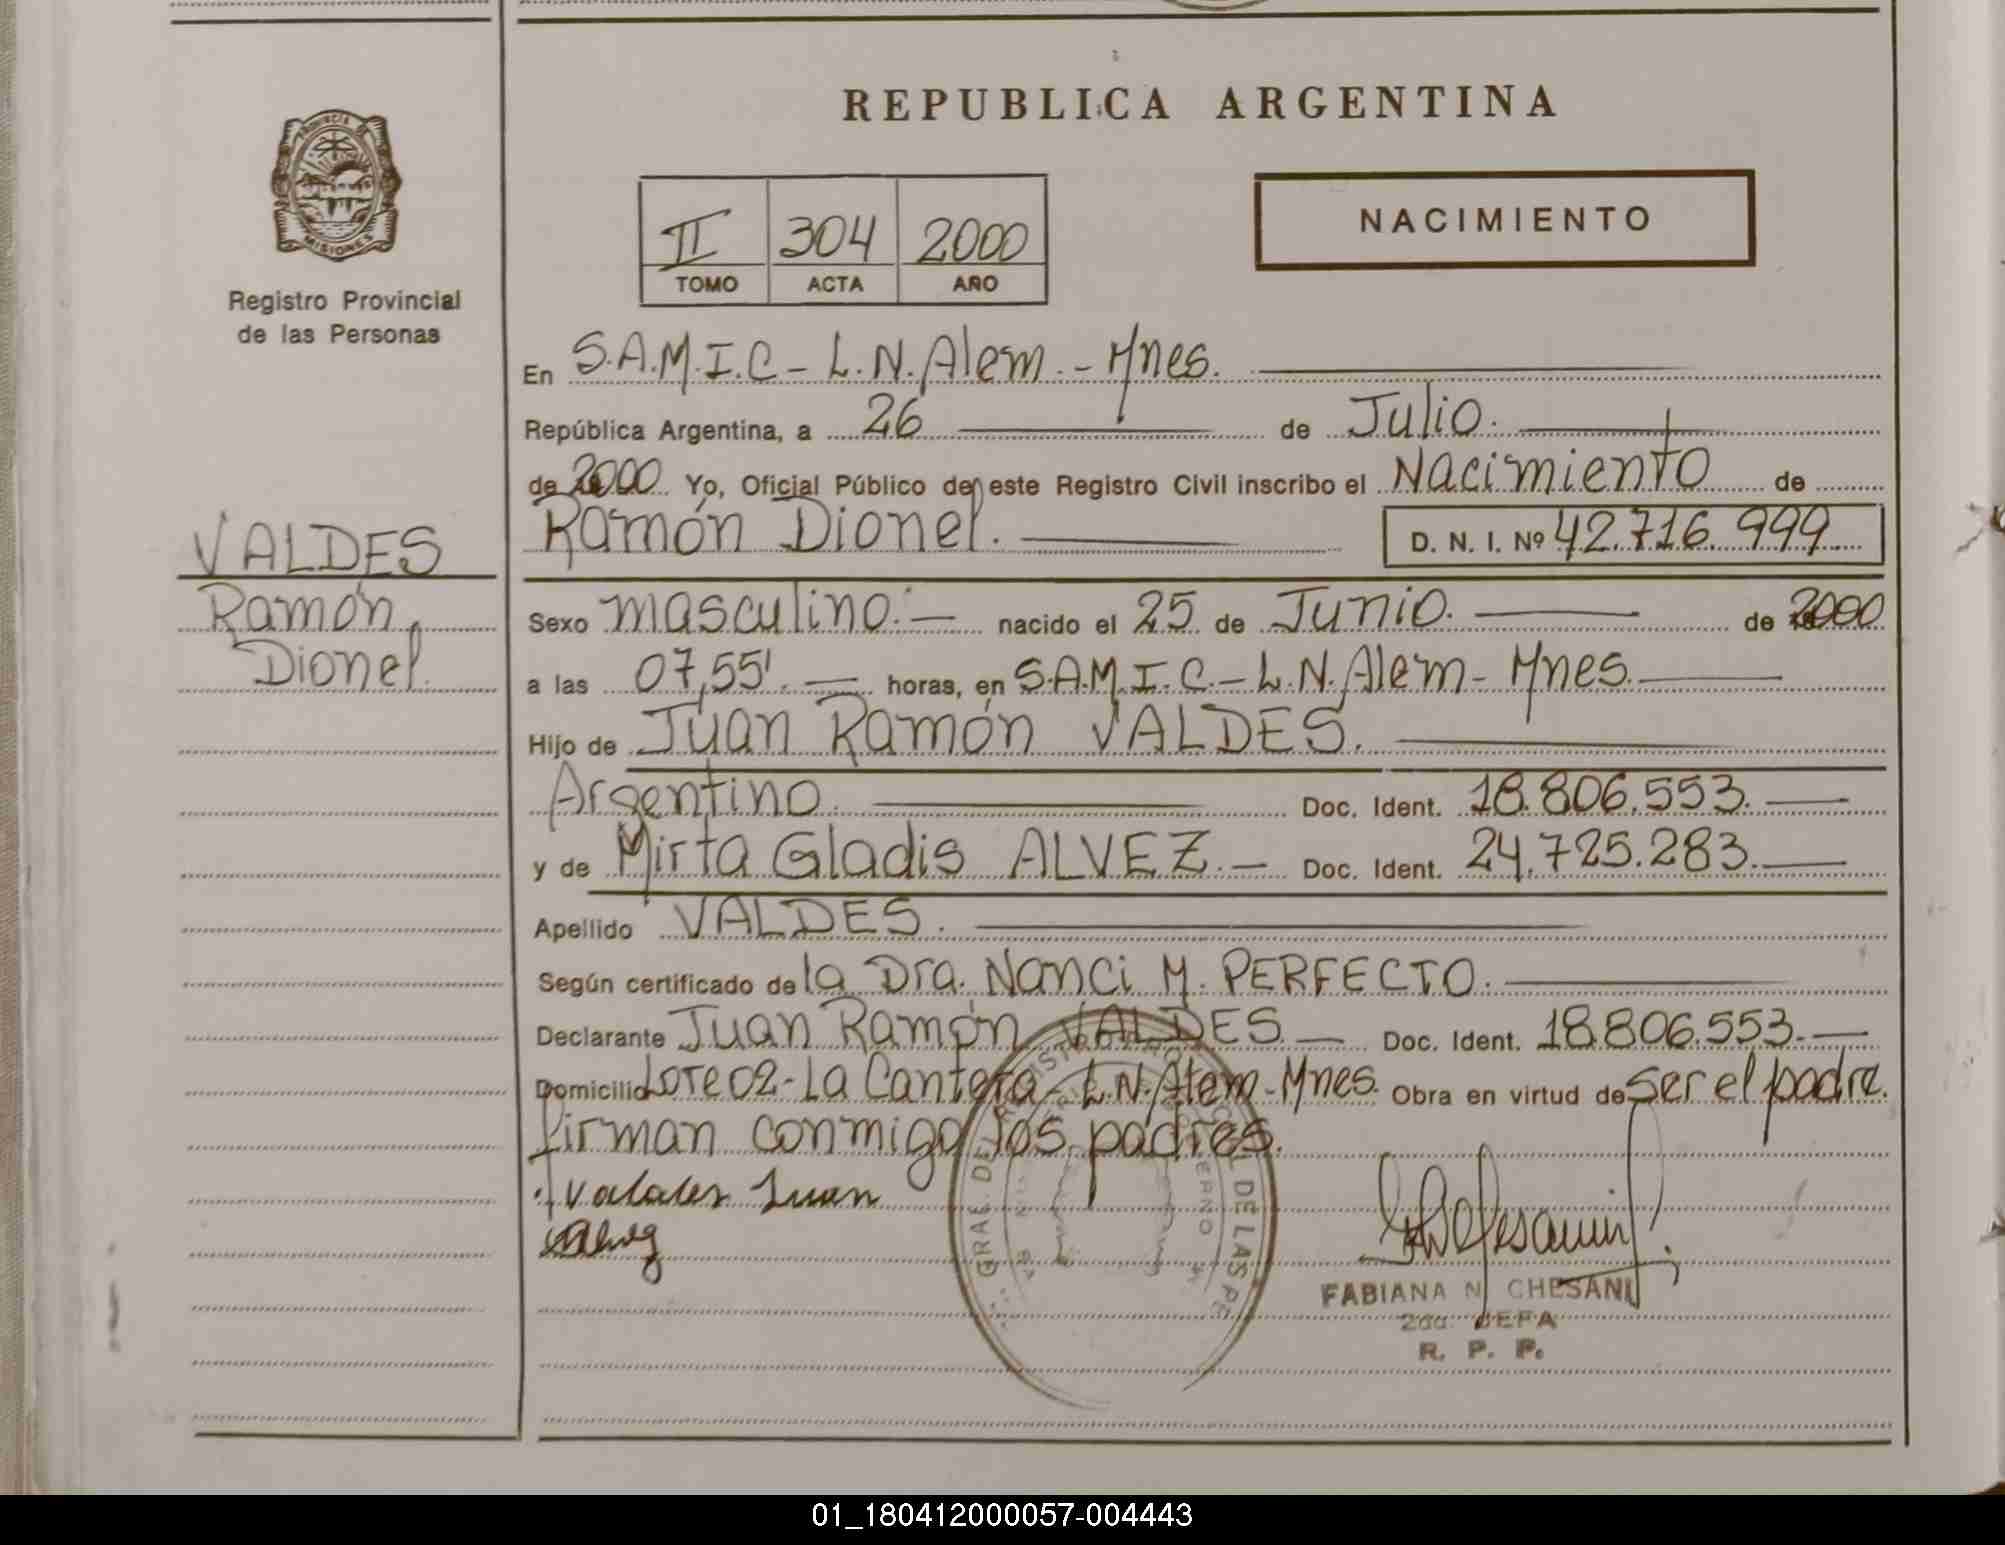 REPUBLICA ARGENTINA
PROVINCIA DE
MISIONES
Registro Provincial
de las Personas
II 304 2000
TOMO ACTA AÑO
NACIMIENTO
En S.A.M.I.C - L.N.Alem. - Mnes.
República Argentina, a 26 de Julio.
de 2000 Yo, Oficial Público de este Registro Civil inscribo el Nacimiento de
Ramón Dionel. D. N. I. Nº 42.716.999
VALDES
Ramón
Dionel.
Sexo masculino. nacido el 25 de Junio. de 2000
a las 07,55'. horas, en S.A.M.I.C. - L.N.Alem - Mnes.
Hijo de Juan Ramón VALDES.
Argentino. Doc. Ident. 18.806.553.
y de Mirta Gladis ALVEZ. Doc. Ident. 24.725.283.
Apellido VALDES.
Según certificado de la Dra. Nanci M. PERFECTO.
Declarante Juan Ramón VALDES. Doc. Ident. 18.806.553.
Domicilio Lote 02 - La Cantera - L.N.Alem - Mnes. Obra en virtud de ser el padre.
firman conmigo los padres.
Valdes Juan
FABIANA N. CHESANI
2da. JEFA
R. P. P.
GRAL. DEL REGISTRO DE LAS PE
01_180412000057-004443